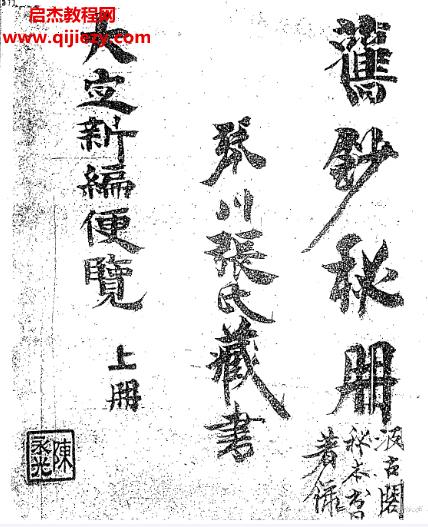 启杰教程网
www.qijiezy.com
舊鈔秘册
汲古閣
秘本書目
著錄
琴川張氏藏書
大定新編便覽
上册
陳永光